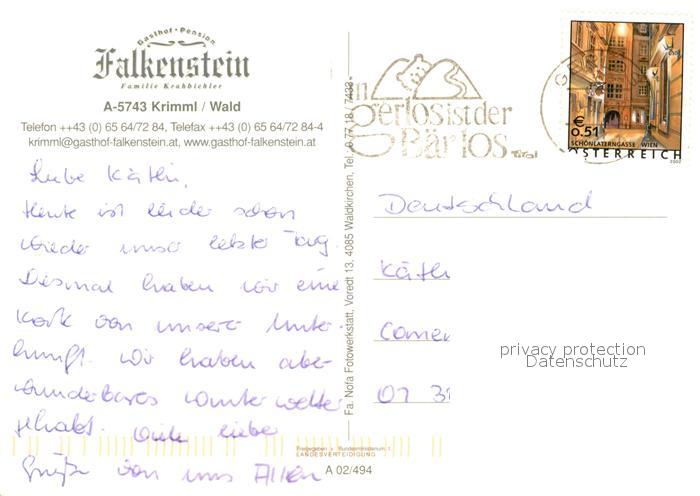 Gasthof - Pension
Falkenstein
Familie Krahbichler
A-5743 Krimml / Wald
Telefon ++43 (0) 65 64/72 84, Telefax ++43 (0) 65 64/72 84-4
krimml@gasthof-falkenstein.at, www.gasthof-falkenstein.at
Liebe Käthi,
Heute ist leider schon
wieder unser letzter Tag.
Diesmal haben wir eine
Karte von unserer Unter-
kunft. Wir haben aber
wunderbares Winterwetter
gehabt. Viele liebe
Grüße von uns Allen
Fa. Nofa Fotowerkstatt, Voredt 13, 4085 Waldkirchen, Tel. 0 77 18 / 7433
Freigegeben v. Bundesministerium f.
LANDESVERTEIDIGUNG
A 02/494
in
gerlos ist der
Bär los
Tirol
€
0.51
SCHÖNLATERNGASSE WIEN
ÖSTERREICH
2002
Deutschland
Käthi
01 31
privacy protection
Datenschutz